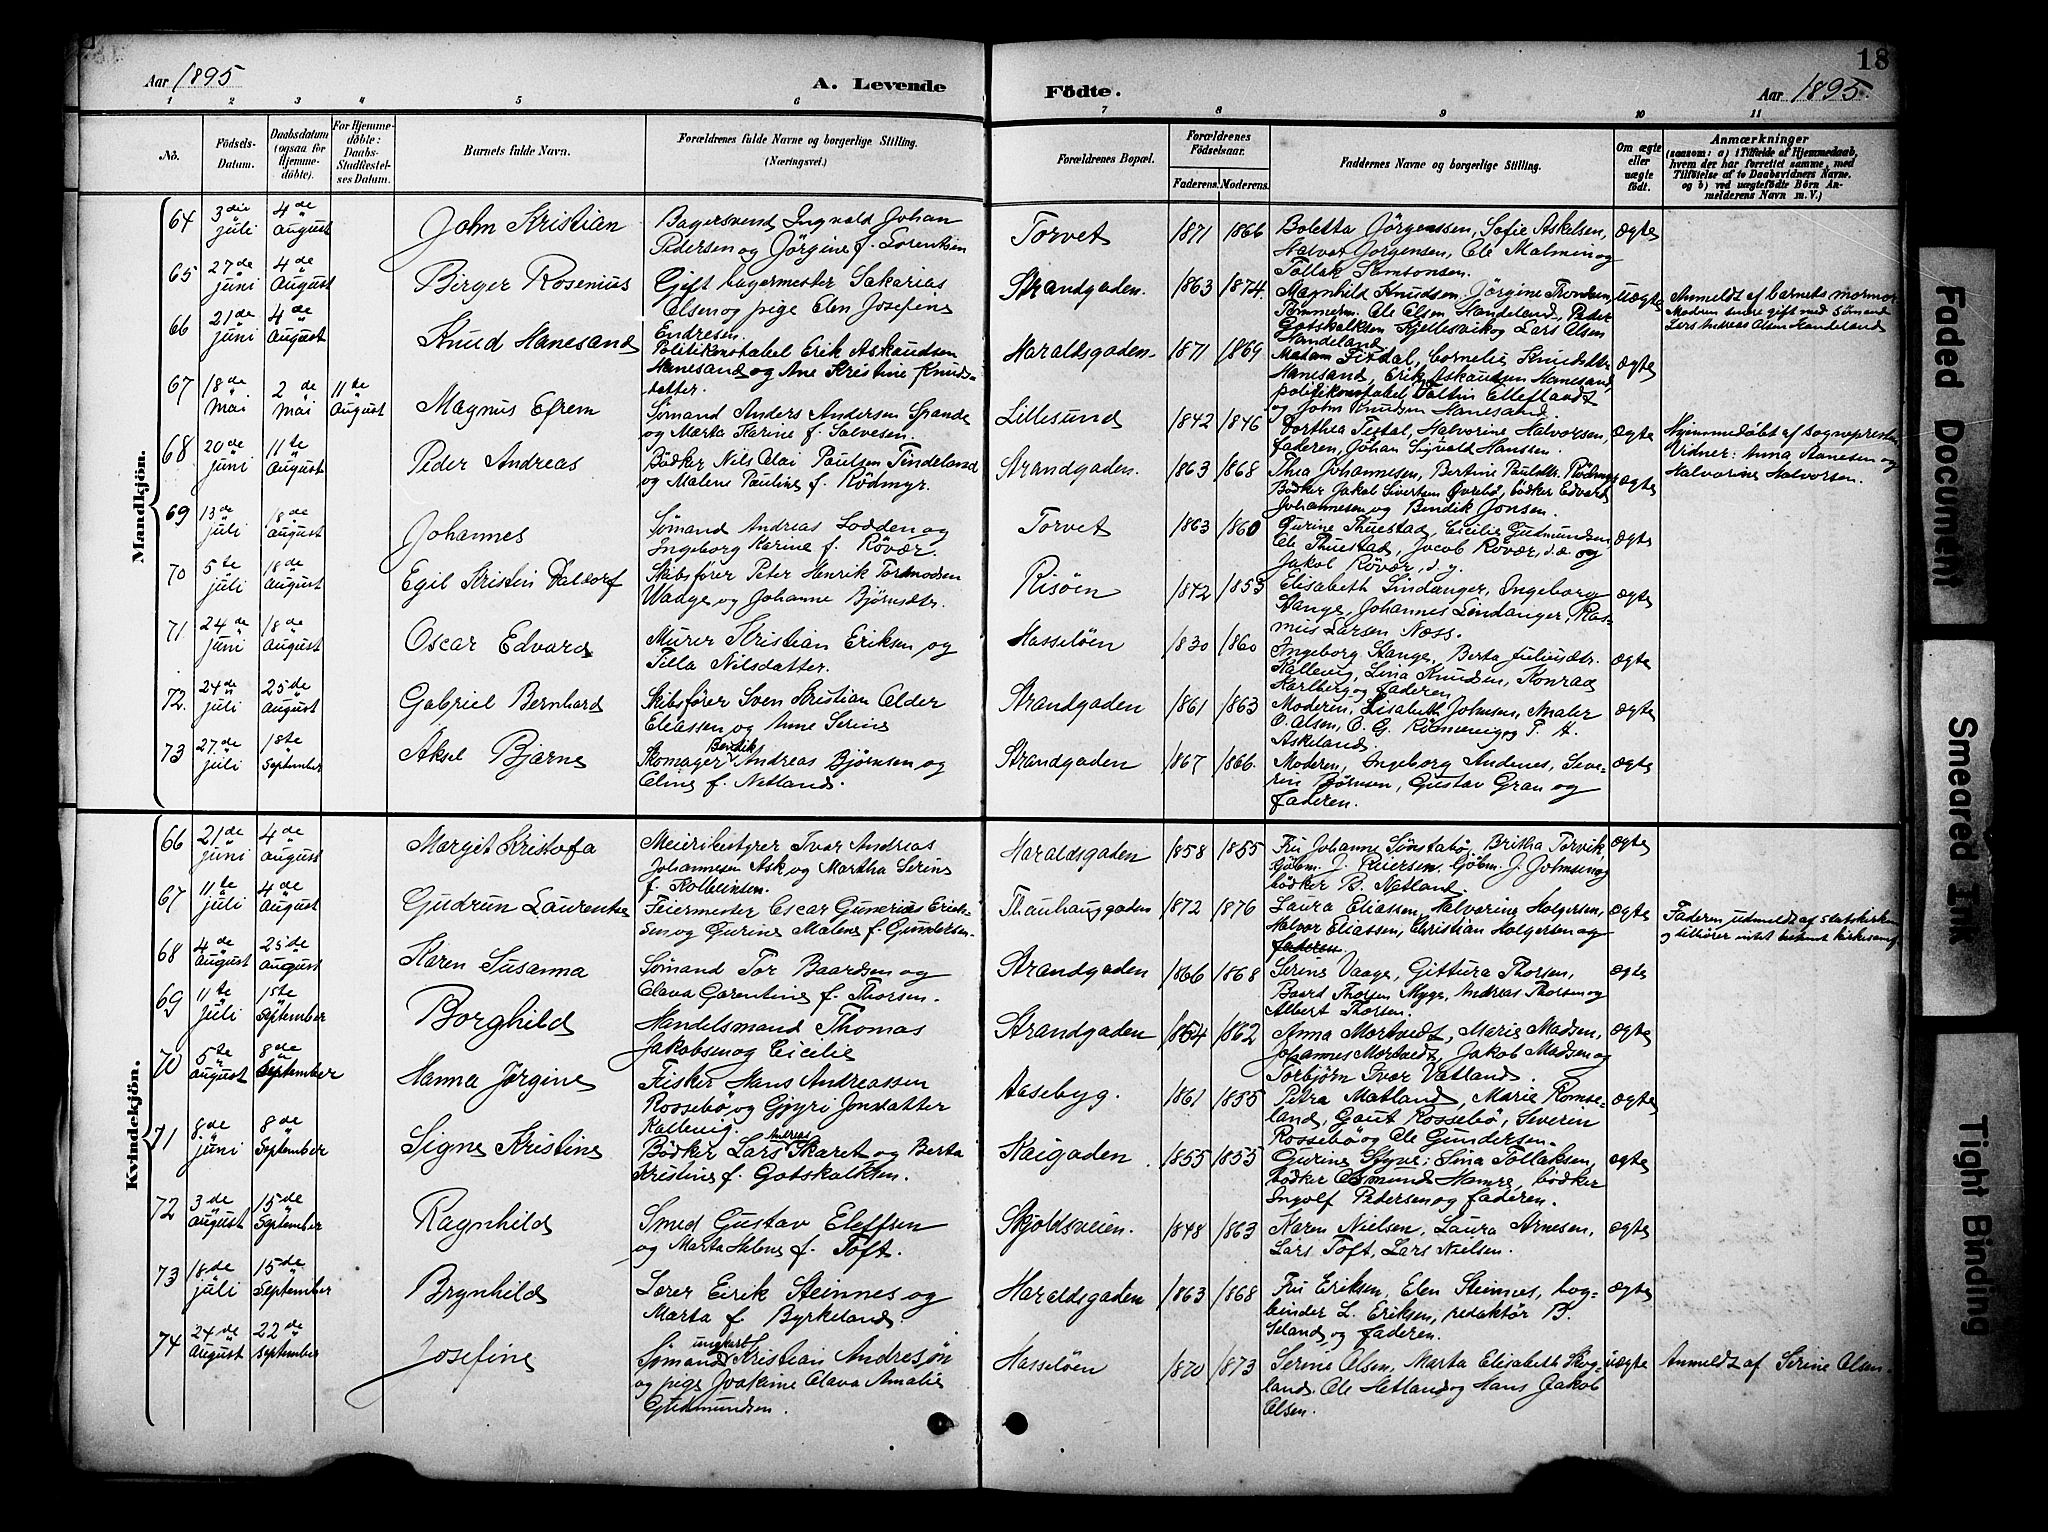 18
Aar 1895
A. Levende
Födte.
Aar 1895.
1 2 3 4 5 6 7 8 9 10 11
No.
Födsels-
Datum.
Daabsdatum
(ogsaa for
Hjemme-
döbte).
For Hjemme-
döbte:
Daabs-
Stadfæstel-
ses Datum.
Barnets fulde Navn.
Forældrenes fulde Navne og borgerlige Stilling.
(Næringsvei.)
Forældrenes Bopæl.
Forældrenes
Födselsaar.
Faderens. Moderens.
Faddernes Navne og borgerlige Stilling.
Om ægte
eller
uægte
födt.
Anmærkninger
(saasom: a) i Tilfælde af Hjemmedaab,
hvem der har forrettet samme, med
Tilföielse af to Daabsvidners Navne,
og b) ved uægtefödte Börn An-
melderens Navn m. V.)
Mandkjön.
64 3die juli 4de august John Kristian
Bagersvend Ingvald Johan
Pedersen og Jörgine f. Lorentsen
Torvet 1871 1866
Boletta Jörgenssen, Sofie Askelsen,
Halvor Jörgensen, Ole Malmin og
Tollak Samtonsen.
ægte
65 27de juni 4de august Birger Rosenius
Gift bagermester Sakarias
Olsen og pige Elen Josefine
Endresen.
Strandgaden. 1863 1874.
Magnhild Knudsen, Jörgine Trondsen,
Tömmerm. Ole Olsen Handeland, Peder
Gotskalksen Kjellesvik og Lars Olsen
Handeland
uægte
Anmeldt af barnets mormor
Modren senere gift med Sömand
Lars Andreas Olsen Handeland
66 21de juni 4de august Knud Hanesand
Politikonstabel Erik Askaudsen
Hanesand og Ane Kristine Knuds-
datter.
Haraldsgaden. 1871 1869
Madam Fixdal, Cornelie Knudsdtr
Hanesand, Erik Askautsen Hanesand,
politikonstabel Valtin Elleflandt
og John Knudsen Hanesand.
ægte
67 18de mai 2de mai 11te august Magnus Efrem
Sömand Anders Andersen Spande
og Marta Karine f. Salvesen.
Lillesund 1842 1846
Dorthea Fixdal, Halvorine Halvorsen,
faderen, Johan Sigvald Hanssen.
ægte
Hjemmedöbt af sognepresten
Vidner: Anna Aanesen og
Halvorine Halvorsen.
68 20de juni 11te august Peder Andreas
Bödker Nils Olai Paulsen Tindeland
og Malene Pauline f. Rödmyr.
Strandgaden. 1863 1868
Thea Johannesen, Bertine Paulsdtr. Rödmyr,
Bödker Jakob Sivertsen Övrebö, bödker Edvard
Johannesen og Bendik Jonsen.
ægte
69 13de juli 18de august Johannes
Sömand Andreas Lodden og
Ingeborg Karine f. Rövær.
Torvet 1863 1860
Gurine Thuestad, Cecilie Gudmundsen,
Ole Thuestad, Jacob Rövær, d.æ og
Jakob Rövær, d.y.
ægte
70 5te juli 18de august Egil Kristin Valdorf
Skibsförer Peter Henrik Tormodsen
Waage og Johanne Björnsdtr.
Risöen 1842 1853
Elisabeth Lindanger, Ingeborg
Stange, Johannes Lindanger, Ras-
mus Larsen Næss.
ægte
71 24de juni 18de august Oscar Edvard
Murer Kristian Eriksen og
Pilla Nilsdatter.
Hasselöen 1830 1860
Ingeborg Stange, Berta Juliusdtr.
Kallevig, Lina Knudsen, Konrad
Karlberg og faderen.
ægte
72. 24de juli 25de august Gabriel Bernhard
Skibsförer Sven Kristian Older
Eliassen og Anne Serine
Strandgaden 1861 1863
Moderen, Lisabeth Johnsen, Maler
O. Olsen, O. G. Römmevig og P. A.
Askeland.
ægte
73 27de juli 18te September Aksel Bjarne
Skomager Bendik Andreas Björnsen og
Eline f. Netland.
Strandgaden 1867 1866.
Moderen, Ingeborg Andenes, Seve-
rin Börnsen, Gustav Gran og
faderen.
ægte
Kvindekjön.
66 21de juni 4de august Margit Kristofa
Meieribestyrer Ivar Andreas
Johannesen Ask og Martha Serine
f. Kolbeinsen.
Haraldsgaden 1858 1855
Fru Johanne Sönstabö, Britha Torvik,
Kjöbm. J. Reiersen, Kjöbm. J. Johnsen og
bödker B. Netland.
ægte
67 11te juli 4de august Gudrun Laurentse
Feiermester Oscar Gunerius Erik-
sen og Gurine Malene f. Gundersen.
Thauhauggaden 1872 1876
Laura Eliassen, Halvorine Holgersen,
Halvor Eliassen, Christian Holgersen og
faderen.
ægte
Faderen udmeldt af statskirken
og tilhörer intet bekient kirkesamf.
68 4de august 25de august Karen Susanna
Sömand Tor Baardsen og
Olava Garentine f. Thorsen.
Strandgaden 1866 1868
Serine Vaage, Gittura Thorsen,
Baard Thorsen Myge, Andreas Thorsen og
Albert Thorsen.
ægte
69 11te juli 15te September Borghild
Handelsmand Thomas
Jakobsen og Cicilie
Strandgaden 1854 1862
Anna Mortvedt, Marie Madsen,
Johannes Mortvedt, Jakob Madsen og
Torbjörn Ivar Vatland.
ægte
70 5te august 8de September Hanna Jörgine
Fisker Hans Andreassen
Rossebö og Gjyri Jonsdatter
Kallevig.
Aasebyg. 1861 1855
Petra Matland, Marie Romse-
land, Gaut Rossebö, Severin
Rossebö og Ole Gundersen.
ægte
71 8de juni 8de September Signe Kristine
Bödker Lars Andreas Skaret og Berta
Kristine f. Gotskalksen.
Kaigaden 1855 1855
Gurine Styve, Lina Tollaksen,
bödker Osmund Hamre, bödker
Ingolf Pedersen og faderen.
ægte
72 3de august 15de September Ragnhild
Smed Gustav Eleffsen
og Marta Helene f. Toft.
Skjoldsveien. 1848 1863
Karen Nielsen, Laura Arnesen,
Lars Toft, Lars Nielsen.
ægte
73 18de juli 15de September Brynhild
Lærer Eirik Steinnes og
Marta f. Byrkeland.
Haraldsgaden 1863 1868
Fru Eriksen, Elen Steinnes, bog-
binder L. Eriksen, redaktör B.
Seland, og faderen.
ægte
74 24de august 22de September Josefine
Sömand ungkarl Kristian Andresön
og pige Joakime Olava Amalie
Gudmundsen.
Hasselöen 1870 1873
Serine Olsen, Marta Elisabeth Skog-
land, Ole Hetland og Hans Jakob
Olsen.
uægte
Anmeldt af Serine Olsen
Faded Document
Smeared Ink
Tight Binding